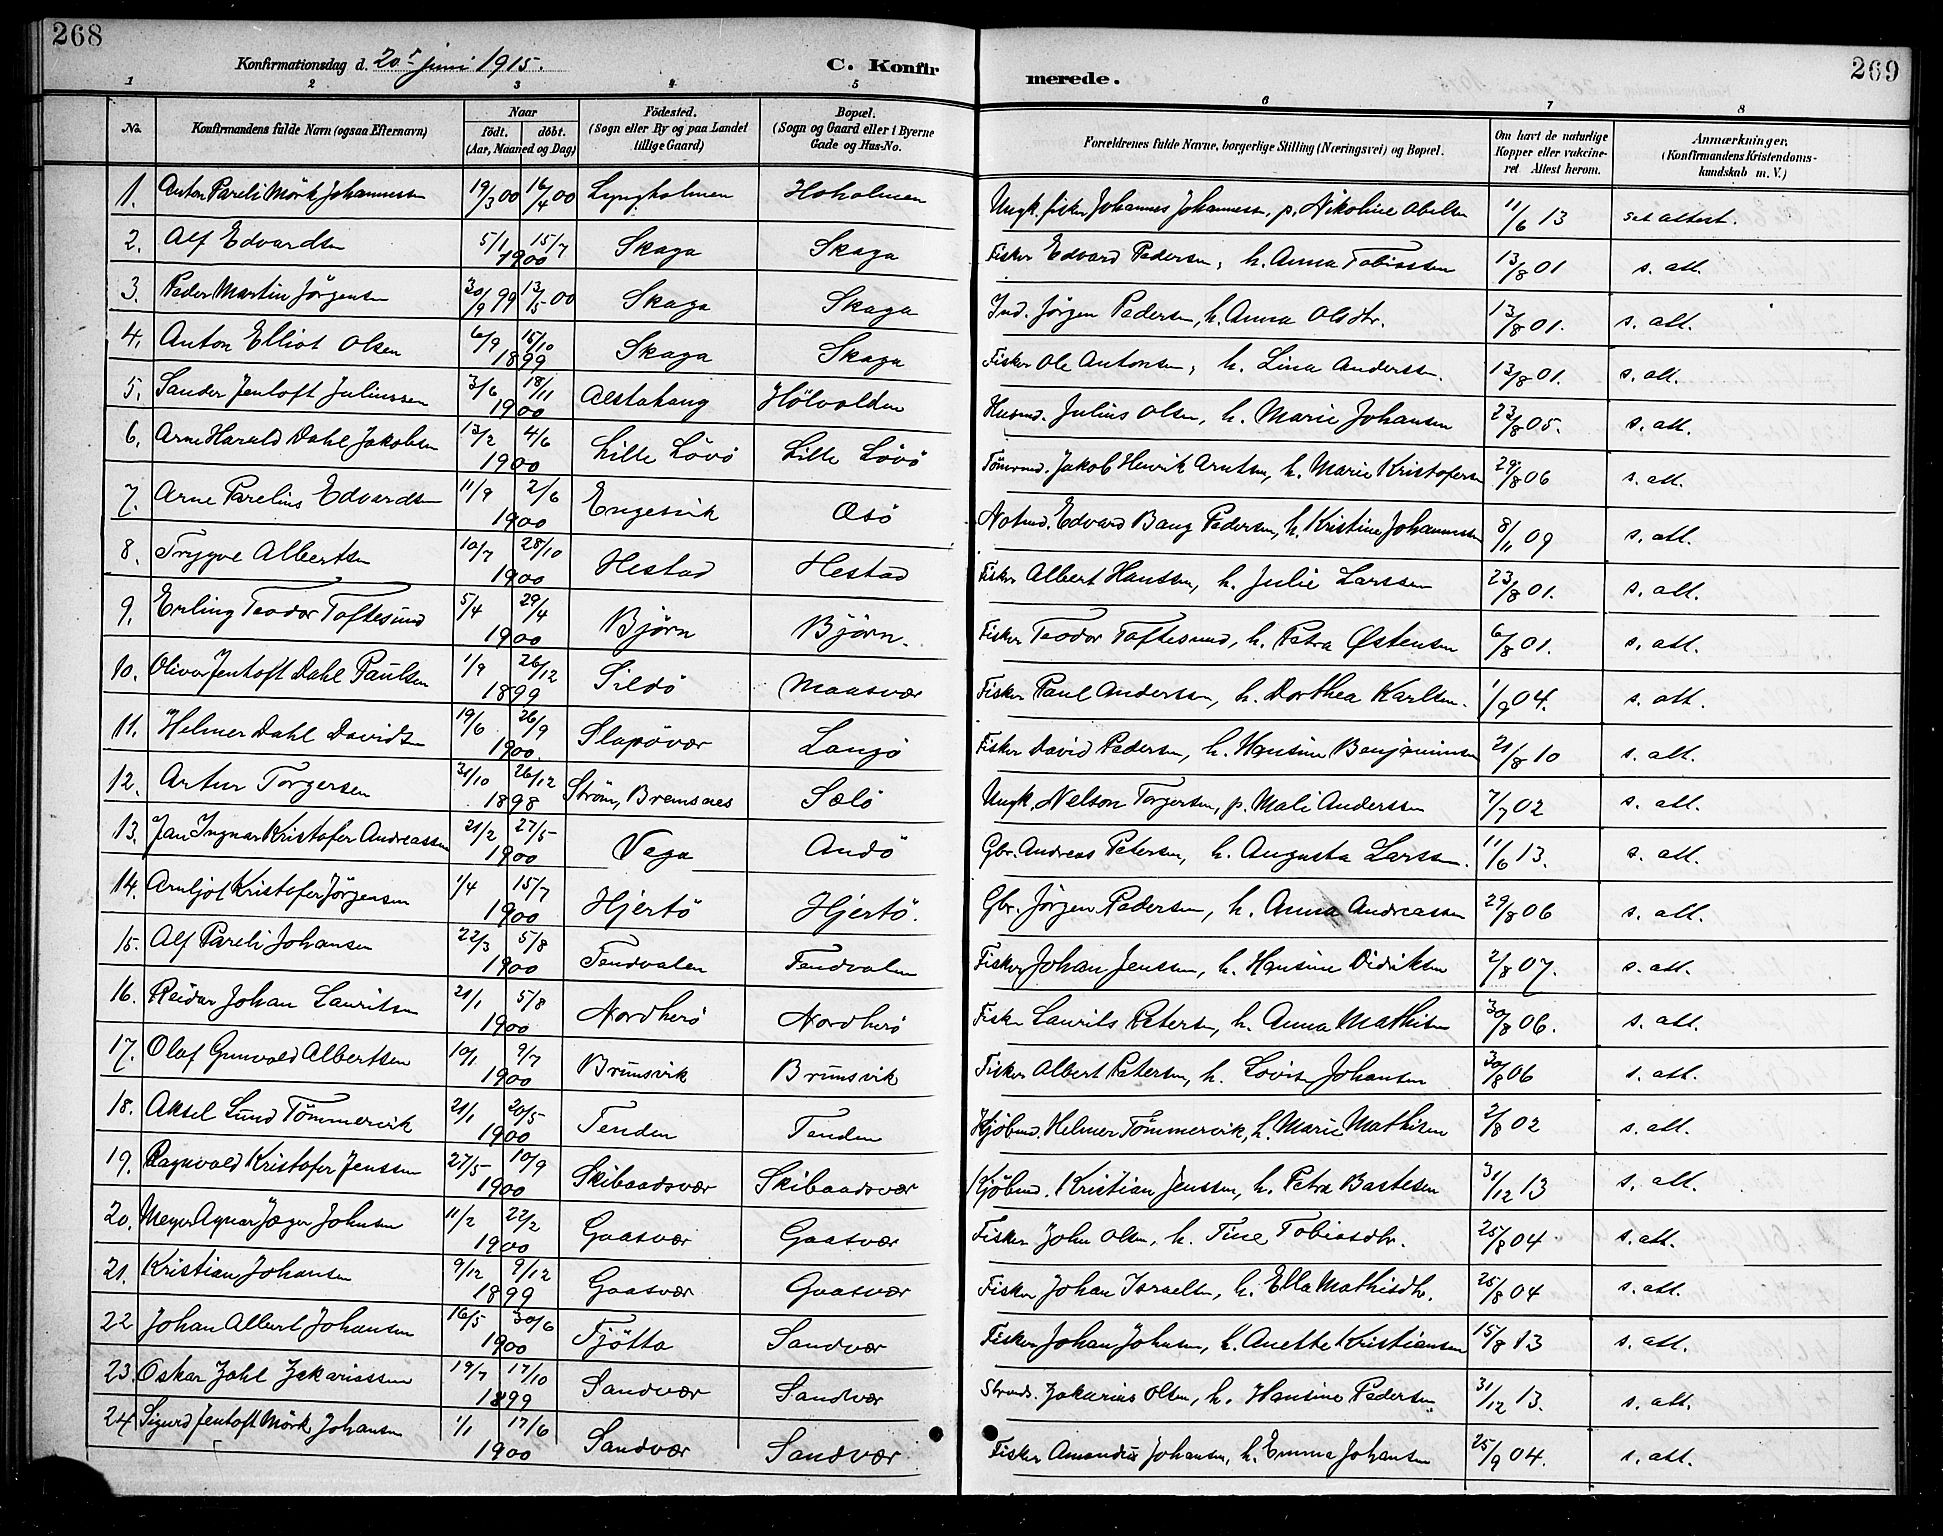 268
Konfirmationsdag d. 20de juni 1915.
C. Konfirmerede.
269
1 2 3 4 5 6 7 8
No. Konfirmandens fulde Navn (ogsaa Efternavn) Naar født. døbt. (Aar, Maaned og Dag) Fødested. (Sogn eller By og paa Landet tillige Gaard) Bopæl. (Sogn og Gaard eller i Byerne Gade og Hus-No. Forældrenes fulde Navne, borgerlige Stilling (Næringsvei) og Bopæl. Om havt de naturlige Kopper eller vakcineret Attest herom. Anmærkninger. (Konfirmandens Kristendomskundskab m. V.)
1. Anton Pareli Mörk Johannessen 19/3 00 16/4 00 Lyngholmen Hoholmen Ungk. fisker Johannes Johannessen, p. Nikoline Abelsen 11/6 13 set attest.
2. Alf Edvardsen 5/1 15/7 1900 Skaga Skaga Fisker Edvard Pedersen, h. Anna Tobiassen 13/8 01 s. att.
3. Peder Martin Jörgensen 30/9 99 13/5 00 Skaga Skaga Ind. Jörgen Pedersen, h. Anna Olsdtr. 13/8 01. s. att.
4. Anton Elliot Olsen 6/9 15/10 1899 Skaga Skaga Fisker Ole Antonsen, h. Lina Anderssen. 13/8 01. s. att.
5. Sander Jentoft Juliussen 3/6 18/11 1900 Alstahaug Hölvolden Husmd. Julius Olsen, h. Marie Johansen 23/8 05. s. att.
6. Arne Harald Dahl Jakobsen 13/2 4/6 1900 Lille Lövö Lille Lövö Tömmd. Jakob Henrik Arntsen, h. Marie Kristofersen 29/8 06 s. att.
7. Arne Parelius Edvardsen 11/9 2/6 1900 Engesvik Oesö Notmd. Edvard Bang Pedersen, h. Kristine Johannessen 8/11 09 s. att.
8. Trygve Albertsen 10/7 28/10 1900 Hestad Hestad Fisker Albert Hanssen, h. Julie Larssen 23/8 01. s. att.
9. Erling Teodor Toftesund 5/4 29/4 1900 Björn Björn. Fisker Teodor Toftesund, h. Petra Østensen 6/8 01. s. att.
10. Oliver Jentoft Dahl Paulsen 1/9 26/12 1899 Sildö Maasvær Fisker Paul Anderssen, h. Dorthea Karlsen. 1/9 04. s. att.
11. Helmer Dahl Davidsen 19/6 26/9 1900. Slapövær Langö Fisker David Pedersen, h. Hansine Benjaminsen 21/8 10 s. att.
12. Artur Torgersen 31/10 26/12 1898 Ström, Bremsnes Sælö Ungk. Nelson Torgersen, p. Mali Anderssen 7/7 02 s. att.
13. Jan Ingvar Kristofer Andreassen 21/2 27/5 1900 Vega Andö Gbr. Andreas Petersen, h. Augusta Larssen. 11/6 13. s. att.
14. Arnljot Kristofer Jörgensen 1/4 15/7 1900 Hjertö Hjertö. Gbr. Jörgen Pedersen, h. Anna Andreassen 29/8 06 s. att.
15. Alf Pareli Johansen 22/3 5/8 1900 Tendvalen Tendvalen Fisker Johan Jenssen, h. Hansine Didriksen 2/8 07. s. att.
16. Reidar Johan Lauritsen 21/1 5/8 1900 Nordherö Nordherö Fisker Laurits Petersen, h. Anna Mathisen 30/8 06. s. att.
17. Olaf Gunvald Albertsen 10/1 9/7 1900 Brunsvik Brunsvik Fisker Albert Petersen, h. Lovise Johansen 30/8 06 s. att.
18. Aksel Lund Tömmervik 21/1 20/5 1900 Tenden Tenden Kjöbmd. Helmer Tömmervik, h. Marie Mathisen 2/8 02 s. att.
19. Ragnvald Kristofer Jenssen 27/5 10/9 1900 Skibaadsvær Skibaadsvær Kjöbmd. Kristian Jenssen, h. Petra Bastesen 31/12 13 s. att.
20. Meyer Agnar Jæger Johnsen 11/2 22/2 1900 Gaasvær Gaasvær Fisker John Olsen, h. Tine Tobiasdtr. 25/8 04 s. att.
21. Kristian Johansen 9/12 9/12 1899 Gaasvær Gaasvær Fisker Johan Israelsen, h. Ella Mathisdtr. 25/8 04 s. att.
22 Johan Albert Johansen 16/5 30/6 1900 Tjötta Sandvær Fisker Johan Johnsen, h. Anette Kristiansen 15/8 13 s. att.
23. Oskar Johl Zakariassen 19/7 17/10 1899 Sandvær Sandvær Strands. Zakarias Olsen, h. Hansine Pedersen. 31/12 13. s. att.
24 Sigurd Jentoft Mörk Johansen 1/1 17/6 1900 Sandvær Sandvær Fisker Amandus Johansen, h. Emma Johansen 25/9 04. s. att.